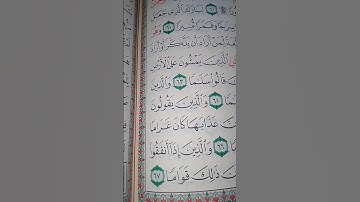 تَبَارَكَ الَّذِي جَعَلَ
سِرَاجًا وَقَمَرًا مُّنِيرًا ٦١ وَهُوَ
خِلْفَةً لِّمَنْ أَرَادَ أَن يَذَّكَّرَ أَوْ أَرَادَ
الَّذِينَ يَمْشُونَ عَلَى الْأَرْضِ
قَالُوا سَلَٰمًا ٦٣ وَالَّذِينَ
٦٤ وَالَّذِينَ يَقُولُونَ
عَذَابَهَا كَانَ غَرَامًا
٦٦ وَالَّذِينَ إِذَا أَنفَقُوا
ذَٰلِكَ قَوَامًا ٦٧